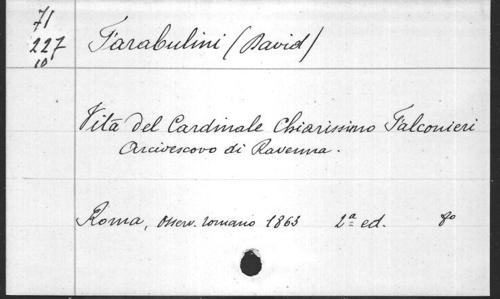 71
227
10
Farabulini (David)
Vita del Cardinale Chiarissimo Falconieri
Arcivescovo di Ravenna.
Roma, Osserv. romano 1863 2ª ed. 8º